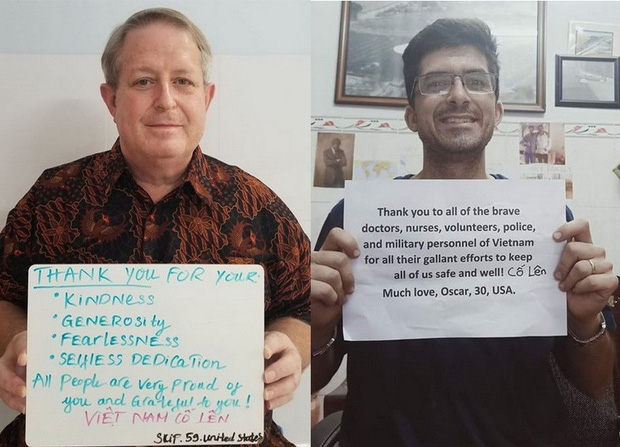 THANK YOU FOR YOUR:
• KINDNESS
• GENEROSITY
• FEARLESSNESS
• SELFLESS DEDICATION
All People are Very Proud of
you and Grateful to you!
VIỆT NAM CỐ LÊN
SKIF.59.United States
Thank you to all of the brave
doctors, nurses, volunteers, police,
and military personnel of Vietnam
for all their gallant efforts to keep
all of us safe and well! Cố Lên
Much love, Oscar, 30, USA.